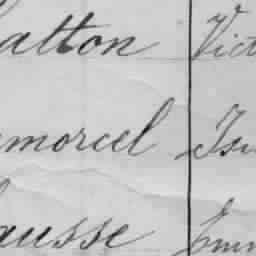 atton Vict
morcel Isi
ausse Emm